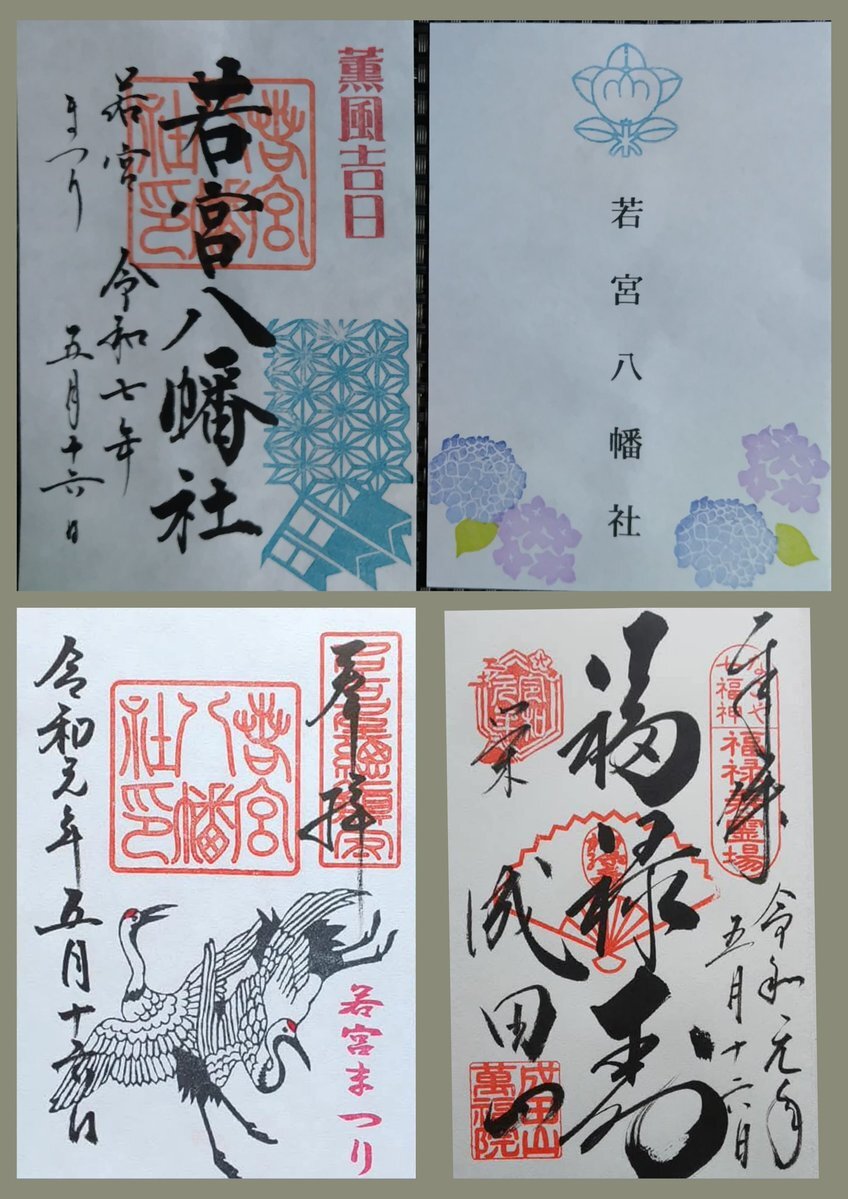 薫風吉日
若宮八幡社
若宮八幡社印
若宮 令和七年
まつり 五月十六日
若宮八幡社
奉拝
若宮八幡社印
若宮まつり
令和元年五月十六日
奉拝
なごや七福神
福禄寿霊場
令和元年
五月十六日
福禄寿
栄
成田山
成田山萬福院